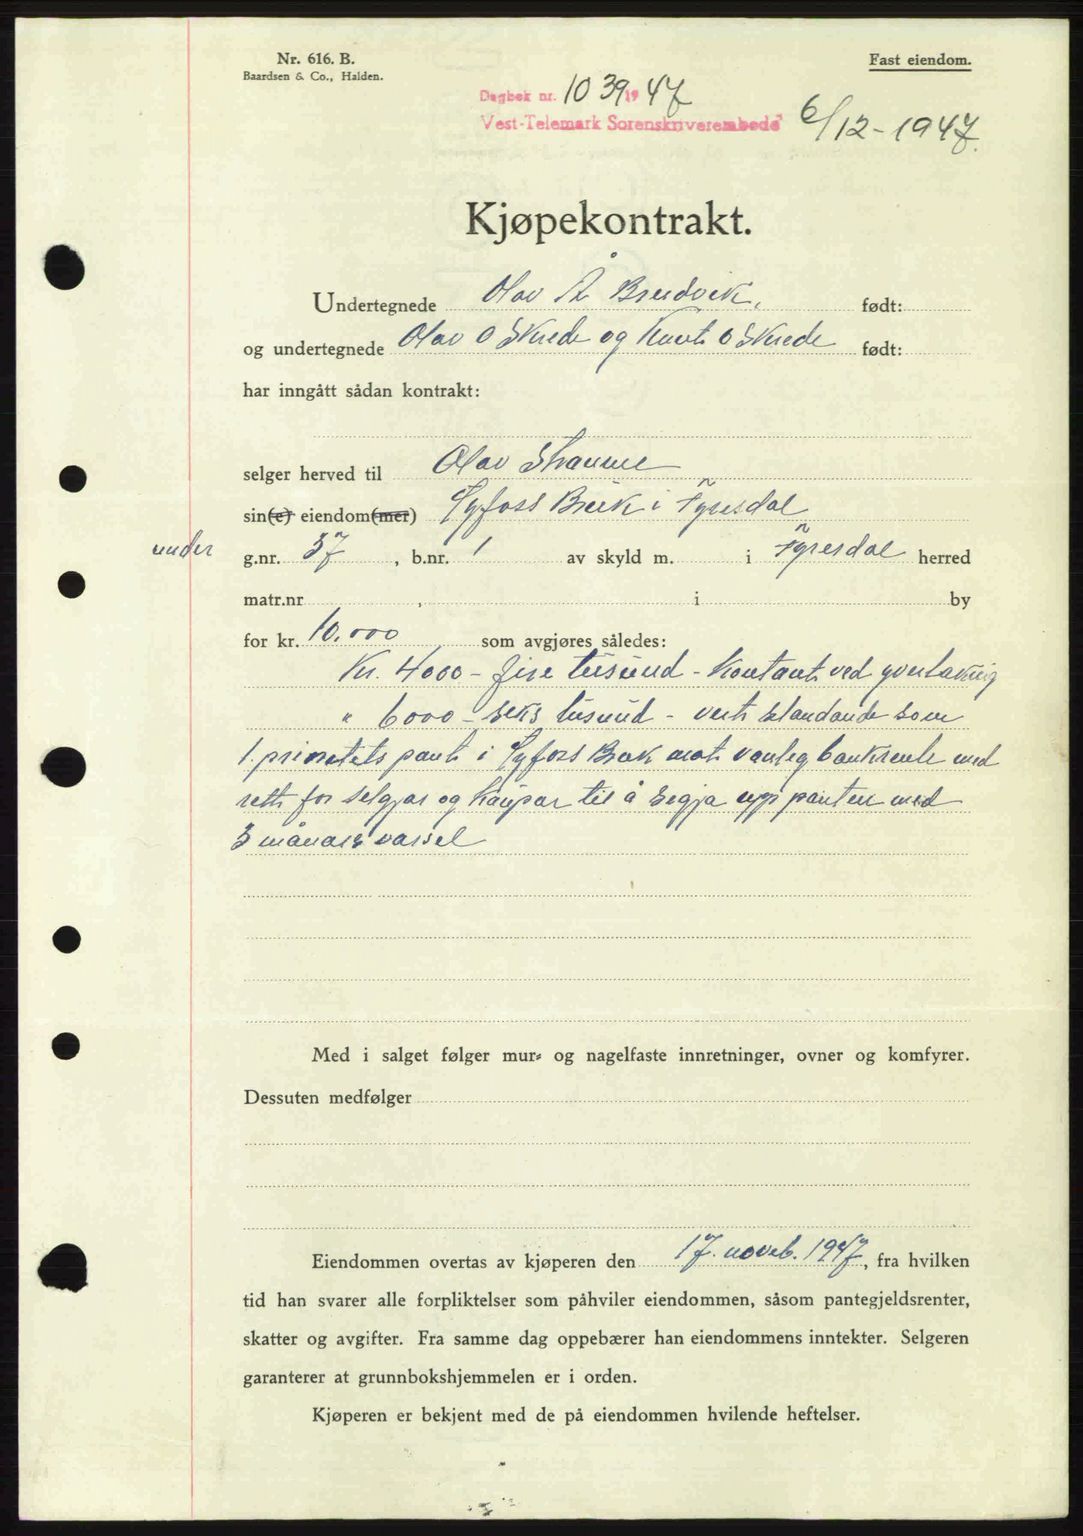 Nr. 616. B.
Baardsen & Co., Halden.
Fast eiendom.
Dagbok nr. 1039 1947
Vest-Telemark Sorenskriverembede
6/12-1947.
Kjøpekontrakt.
Undertegnede Olav Å Breidvik, født:
og undertegnede Olav O Skrede og Knut O Skrede født:
har inngått sådan kontrakt:
selger herved til Olav
sin(e) eiendom(mer) Lyfoss Bruk i Fyresdal
under g.nr. 37, b.nr. 1 av skyld m. i Fyresdal herred
matr.nr , i by
for kr. 10.000 som avgjøres således:
Kr. 4000 - fire tusund - kontant ved yvertaking
" 6000 - seks tusund - vert standande som
1. prioritets pant i Lyfoss Bruk mot vanleg bankrente med
rett for seljar og kaupar til å segja upp panten med
3 månars varsel
Med i salget følger mur- og nagelfaste innretninger, ovner og komfyrer.
Dessuten medfølger
Eiendommen overtas av kjøperen den 17. noveb. 1947, fra hvilken
tid han svarer alle forpliktelser som påhviler eiendommen, såsom pantegjeldsrenter,
skatter og avgifter. Fra samme dag oppebærer han eiendommens inntekter. Selgeren
garanterer at grunnbokshjemmelen er i orden.
Kjøperen er bekjent med de på eiendommen hvilende heftelser.